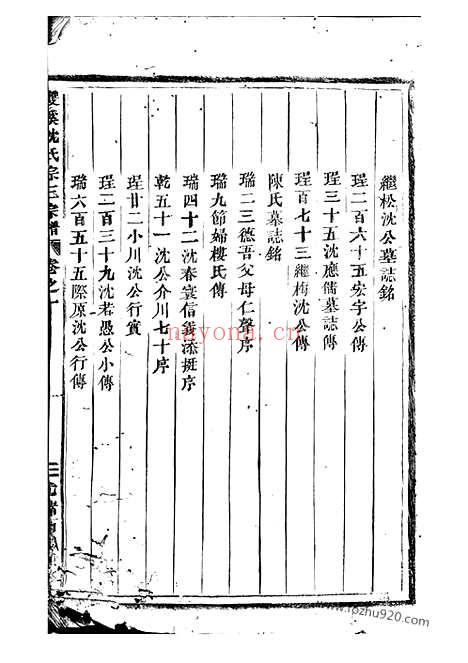 繼松沈公墓誌銘
珵二百六十五宏宇公傳
珵三十五沈應儲墓誌傳
珵百七十三繼梅沈公傳
陳氏墓誌銘
瑞二三德吾父母仁望序
瑞九節婦樓氏傳
瑞四十二沈春裳信義添挺序
乾五十一沈公介川七十序
珵廿二小川沈公行實
珵二百三十九沈若愚公小傳
瑞六百五十五際原沈公行傳
雙溪沈氏宗譜 卷之一
nayona.cn
www.fozhu920.com